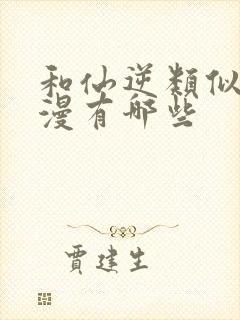 和仙逆類似
漫有哪些
賈建生